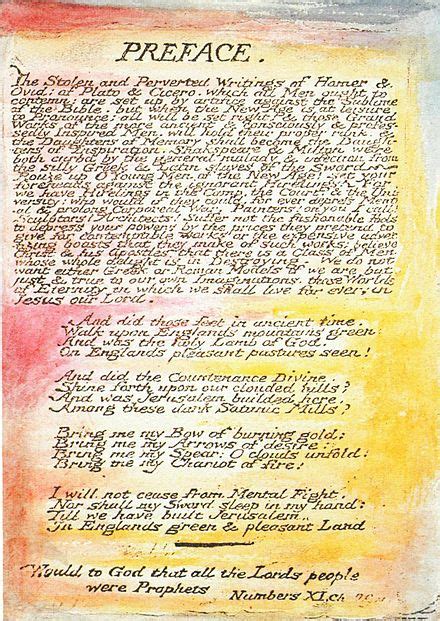 PREFACE.
The Stolen and Perverted Writings of Homer &
Ovid: of Plato & Cicero. which all Men ought to
contemn: are set up by artifice against the Sublime
of the Bible. but when the New Age is at leisure
to Pronounce; all will be set right: & those Grand
Works of the more ancient & consciously & profes-
sedly Inspired Men, will hold their proper rank, &
the Daughters of Memory shall become the Daugh-
ters of Inspiration. Shakspeare & Milton were
both curbd by the general malady & infection from
the silly Greek & Latin slaves of the Sword.
Rouze up O Young Men of the New Age! set your
foreheads against the ignorant Hirelings! For
we have Hirelings in the Camp, the Court, & the Uni-
versity: who would if they could, for ever depress Ment-
al & prolong Corporeal War. Painters! on you I call!
Sculptors! Architects! Suffer not the fashionable Fools
to depress your powers by the prices they pretend to
give for contemptible works or the expensive adver-
tizing boasts that they make of such works; believe
Christ & his Apostles that there is a Class of Men
whose whole delight is in Destroying. We do not
want either Greek or Roman Models if we are but
just & true to our own Imaginations, those Worlds
of Eternity in which we shall live for ever; in
Jesus our Lord.
And did those feet in ancient time.
Walk upon Englands mountains green:
And was the holy Lamb of God.
On Englands pleasant pastures seen!
And did the Countenance Divine.
Shine forth upon our clouded hills?
And was Jerusalem builded here.
Among these dark Satanic Mills?
Bring me my Bow of burning gold:
Bring me my Arrows of desire:
Bring me my Spear: O clouds unfold:
Bring me my Chariot of fire!
I will not cease from Mental Fight.
Nor shall my Sword sleep in my hand:
Till we have built Jerusalem.
In Englands green & pleasant Land
Would to God that all the Lords people
were Prophets Numbers XI.ch